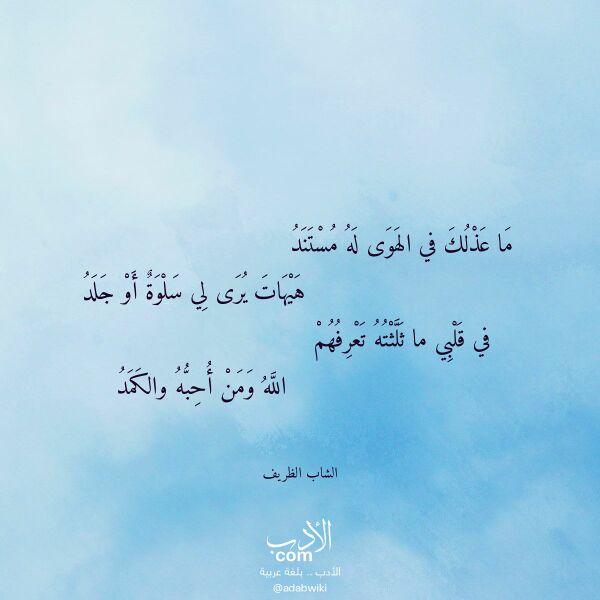 مَا عَذْلُكَ في الهَوَى لَهُ مُسْتَنَدُ
هَيْهَاتَ يُرَى لِي سَلْوَةٌ أَوْ جَلَدُ
في قَلْبِي ما ثَلَّثْتُهُ تَعْرِفُهُمْ
اللَّهُ وَمَنْ أُحِبُّهُ والكَمَدُ
الشاب الظريف
الأدب
com
الأدب .. بلغة عربية
@adabwiki